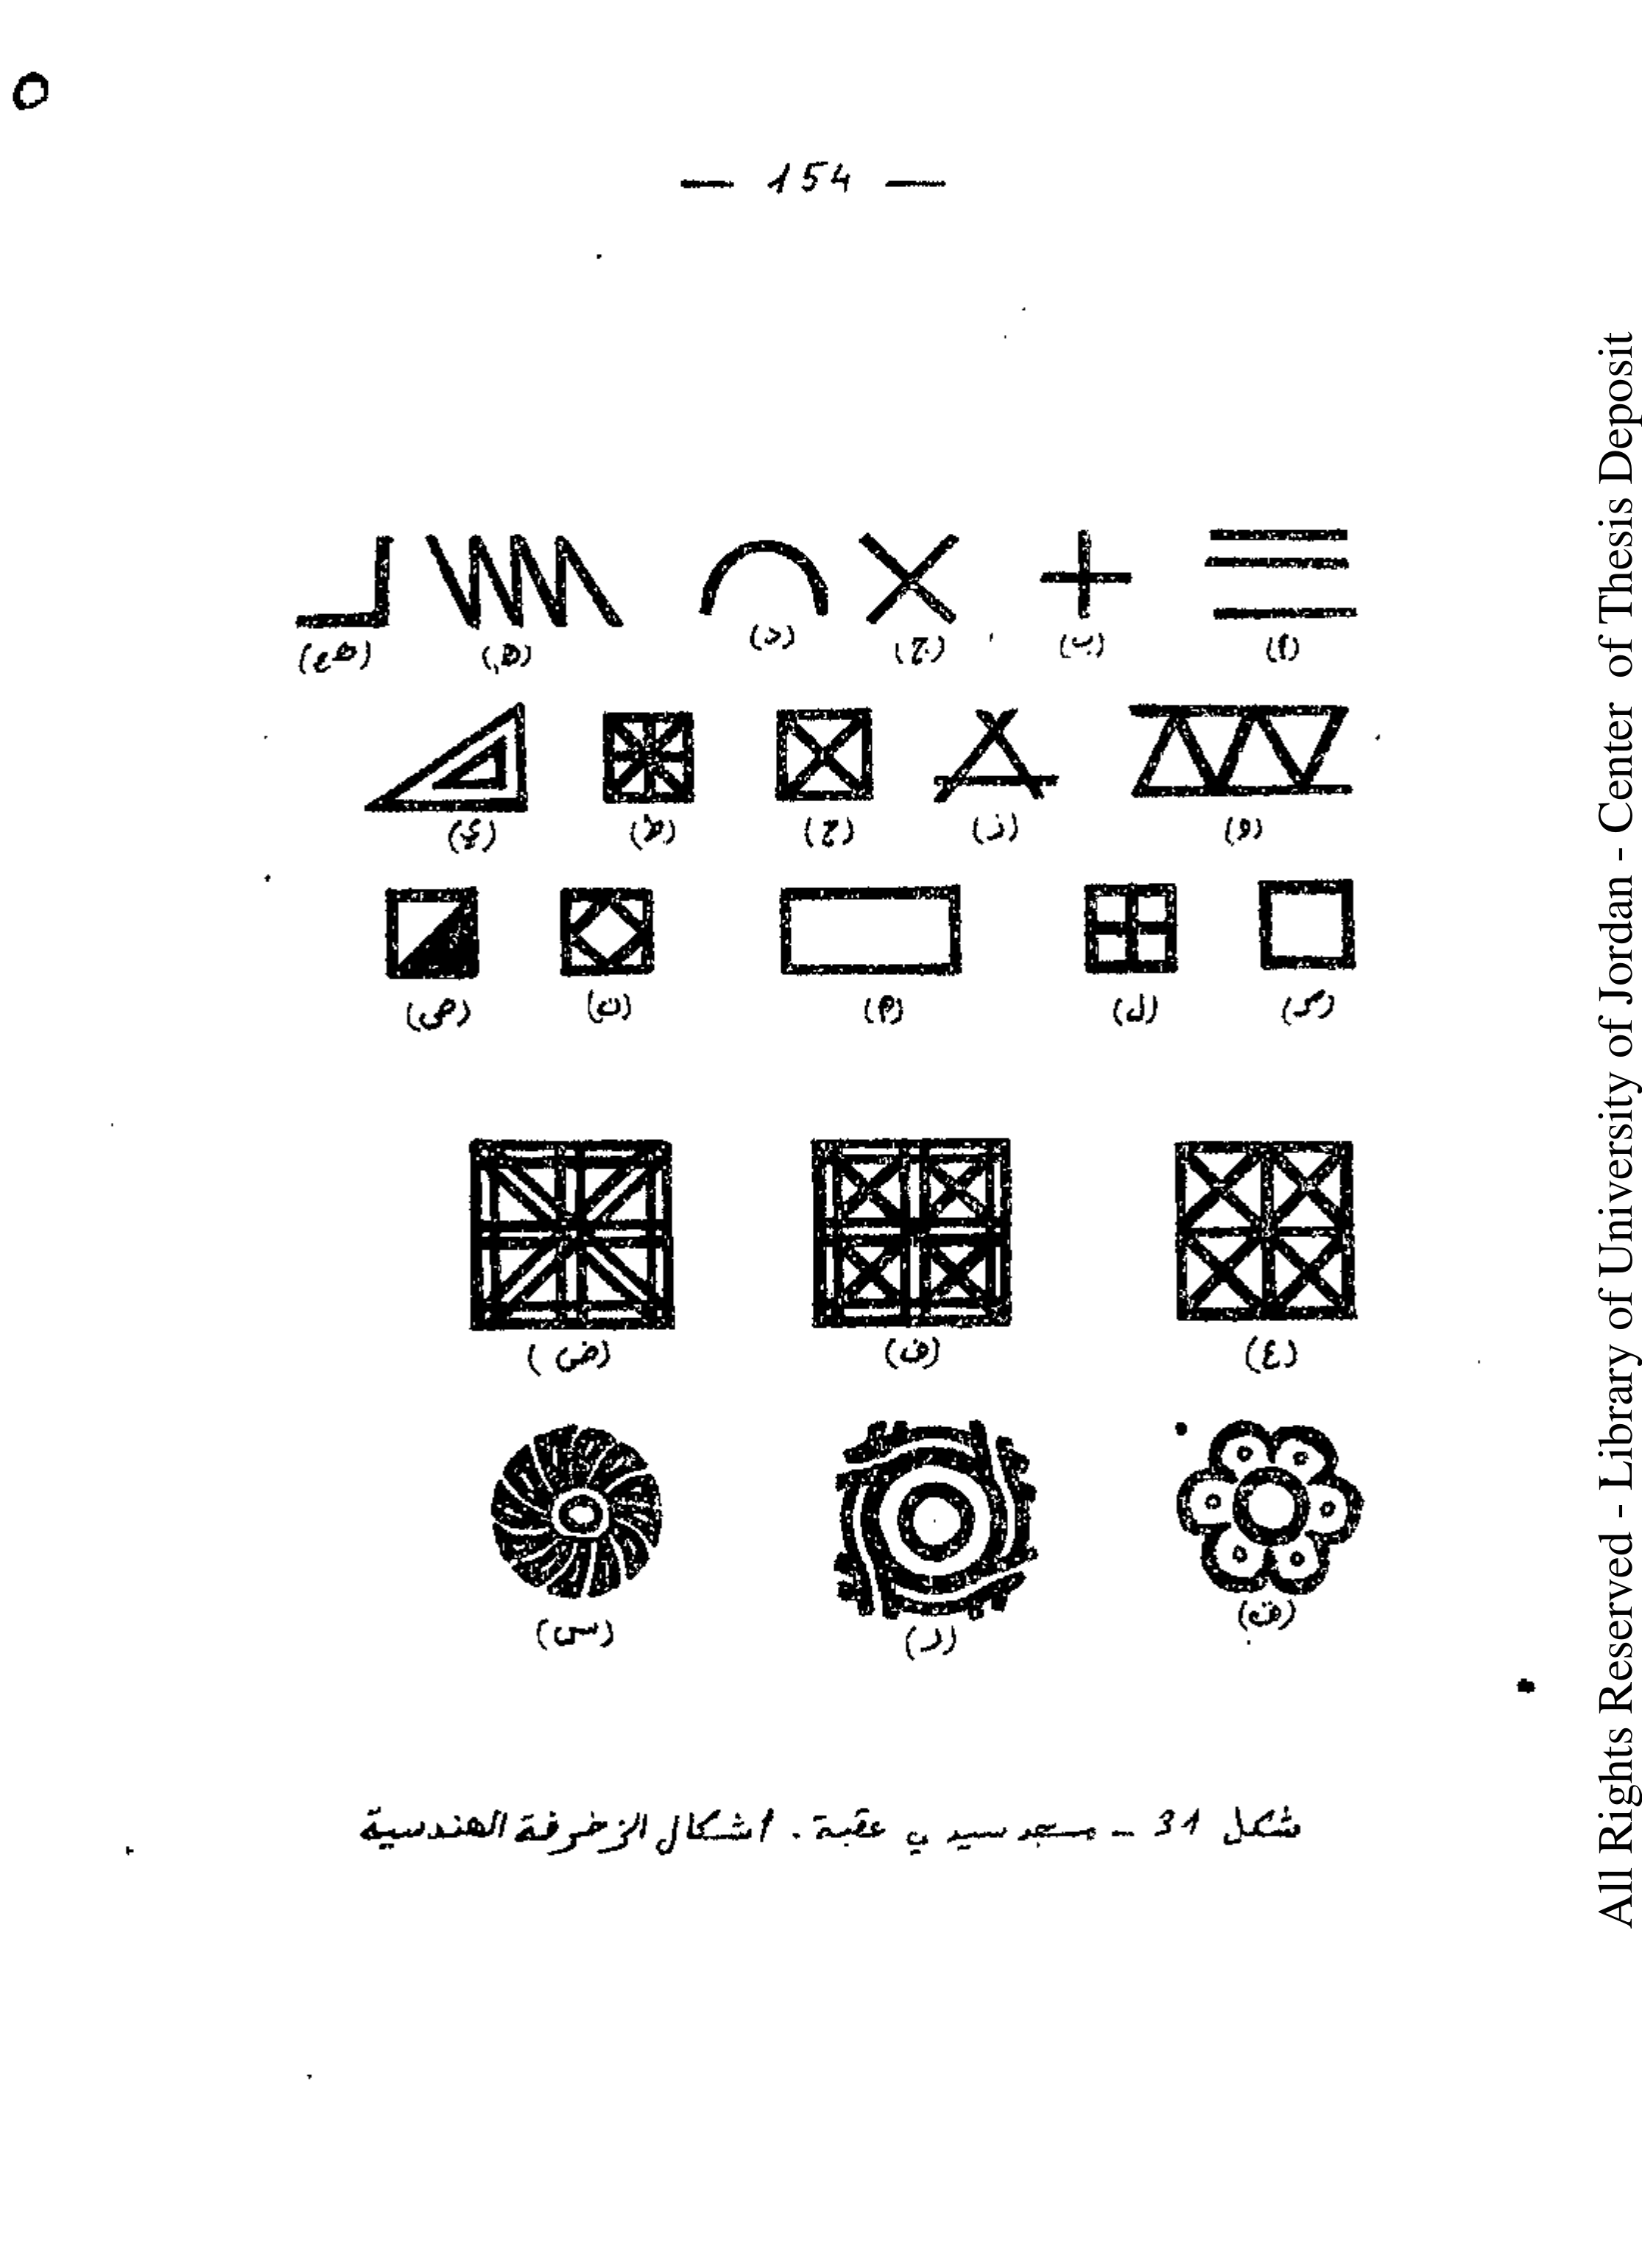 — 154 —
(أ) (ب) (ج) (د) (هـ)
(و) (ز) (ح) (ط) (ي)
(ك) (ل) (م) (ن) (ص)
(ع) (ف) (ض)
(ق) (ر) (س)
شكل 31 - مسجد سيدي عقبة . اشكال الزخرفة الهندسية
All Rights Reserved - Library of University of Jordan - Center of Thesis Deposit